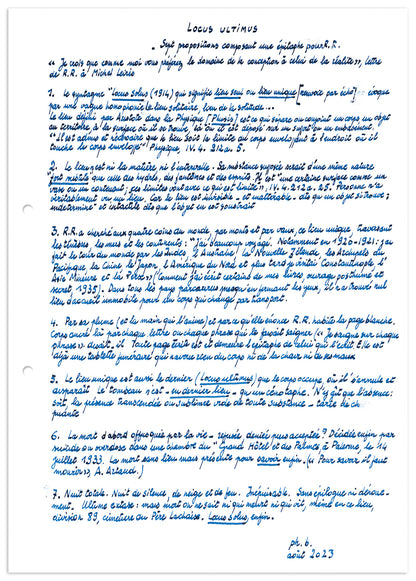 LOCUS ULTIMUS
. Sept propositions composant une épitaphe pour R.R.
« Je crois que comme moi vous préférez le domaine de la conception à celui de la réalité », lettre
de R.R. à Michel Leiris
1. Le syntagme "Locus solus (1914) qui signifie lieu seul ou lieu unique [renvoie par écho] évoque
par une vague homophonie le lieu solitaire, lieu de la solitude...
Le lieu défini par Aristote dans la Physique [Physis] est ce qui sépare ou conjoint un corps en objet
en territoire, à la surface où il se trouve, là où il est déposé sur un support ou un embasement.
"Il est admis et nécessaire que le lieu soit la limite du corps enveloppant à l'endroit où il
touche le corps enveloppé" Physique, IV. 4. 212a 5.
2. Le lieu n'est ni la matière ni l'intervalle. Sa substance supposée serait d'une même nature
que celle des hydres, des fantômes et des esprits. Il est "une certaine surface comme un
vase ou un contenant ; ces limites vont avec ce qui est limité », IV. 4. 212a. 25. Personne n'a
véritablement vu un lieu. Car le lieu est invisible - et inaltérable. dès qu'un objet s'y trouve ;
indéterminé et intactile dès que l'objet en est soustrait
3. R.R. a cherché aux quatre coins du monde, par monts et par vaux, ce lieu unique, traversant
les théâtres, les mers et les continents : "J'ai beaucoup voyagé. Notamment en 1920-1921 : j'ai
fait le tour du monde par les Indes, l'Australie, la Nouvelle Zélande, les Archipels du
Pacifique, la Chine, le Japon, l'Amérique du Nord et plus tard je visitai Constantinople, l'
Asie Mineure et la Perse" (Comment j'ai écrit certains de mes livres, ouvrage posthume et
secret 1935). Dans tous les pays parcourus jusqu'en fermant les yeux, il n'a trouvé nul
lieu d'accueil immobile pour un corps qui change par transport.
4. Par sa plume (et la main qui l'anime) et par ce qu'elle énonce R.R. habite la page blanche.
Corps encré lu par chaque lettre ou chaque phrase qui le faisait saigner (« Je saigne sur chaque
phrase » disait-il. Toute page écrite est et demeure l'épitaphe de celui qui l'écrit. Elle est
déjà une tablette funéraire qui n'aura rien du corps ni de la chair ni de ses maux
5. Le lieu unique est aussi le dernier (Locus ultimus) que le corps occupe, où il s'enroule et
disparaît. Le tombeau n'est - en dernier lieu - qu'un cénotaphe. N'y gît que l'absence :
soit la présence transcendée ou sublimée vide de toute substance - tarte de ch
puante !
6. La mort d'abord offusquée par la vie - refusée, déniée puis acceptée ? Décidée enfin par
suicide ou overdose dans une chambre du "Grand Hôtel et des Palmes à Palerme, le 14
juillet 1933. La mort sans lieu mais présente pour savoir enfin. (« Pour savoir il faut
mourir », A. Artaud.)
7. Nuit totale. Nuit de silence, de neige et de feu. Inépuisable. Sans épilogue ni dénoue-
ment. Ultime extase : mais mort on ne sait ni qui meurt ni qui vit, même en ce lieu,
division 89, cimetière du Père Lachaise. Locus Solus, enfin.
ph. b.
août 2023